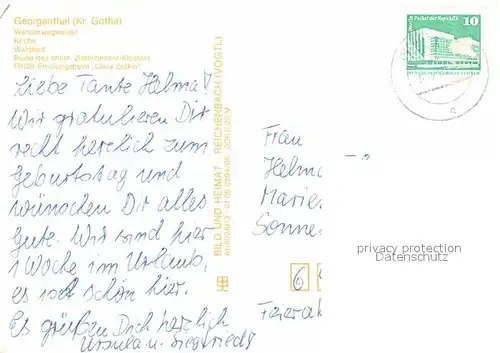 Georgenthal (Kr. Gotha)
Wandmalgewölbe
Kirche
Waldbad
Ruine des ehem. Zisterzienser-Klosters
FDGB-Erholungsheim „Clara Zetkin“
Liebe Tante Helma!
Wir gratulieren Dir
recht herzlich zum
Geburtstag und
wünschen Dir alles
Gute. Wir sind hier
1 Woche im Urlaub,
es ist schön hier.
Es grüßen Dich herzlich
Ursula u. Siegfried
BILD UND HEIMAT REICHENBACH (VOGTL)
Palast der Republik
10
Frau
Helma
Marie
Sonne
6
Feiera
privacy protection
Datenschutz